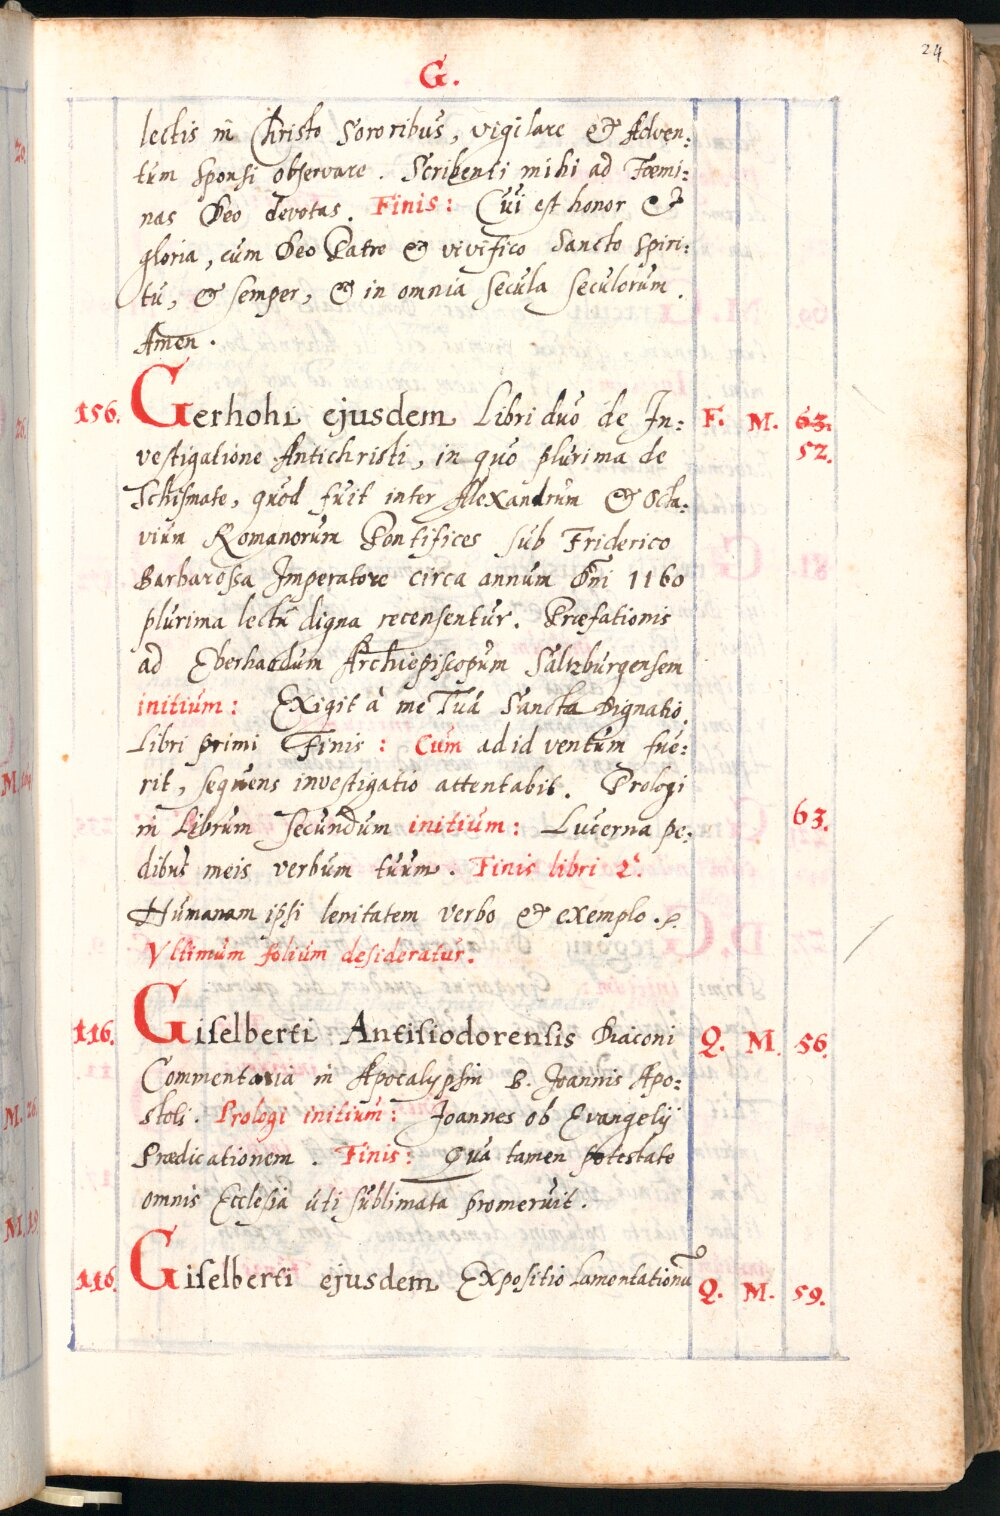 24
G.
lectis in Christo Sororibus, vigilare & Adven:
tum Sponsi observare. Scribenti mihi ad Fœmi:
nas Deo devotas. Finis: Cui est honor &
gloria, cum Deo Patre & vivifico Sancto Spiri:
tu, & semper, & in omnia secula seculorum.
Amen.
156. Gerhohi ejusdem Libri duo de In: F. M. 63.
vestigatione Antichristi, in quo plurima de 52.
Schismate, quod fuit inter Alexandrum & Octa:
vium Romanorum Pontifices sub Friderico
Barbarossa Imperatore circa annum Dni 1160
plurima lectu digna recensentur. Præfationis
ad Eberhardum Archiepiscopum Saltzburgensem
initium: Exigit à me Tua Sancta Dignatio.
Libri primi Finis: Cum ad id ventum fue:
rit, sequens investigatio attentabit. Prologi
in Librum Secundum initium: Lucerna pe: 63.
dibus meis verbum tuum. Finis libri 2.
Humanam ipsi lenitatem verbo & exemplo.
Ultimum folium desideratur.
116. Giselberti Antisiodorensis Diaconi Q. M. 56.
Commentaria in Apocalypsin B. Joannis Apo:
stoli. Prologi initium: Joannes ob Evangelij
Prædicationem. Finis: Qua tamen potestate
omnis Ecclesia uti sublimata promeruit.
116. Giselberti ejusdem Expositio Lamentationũ Q. M. 59.